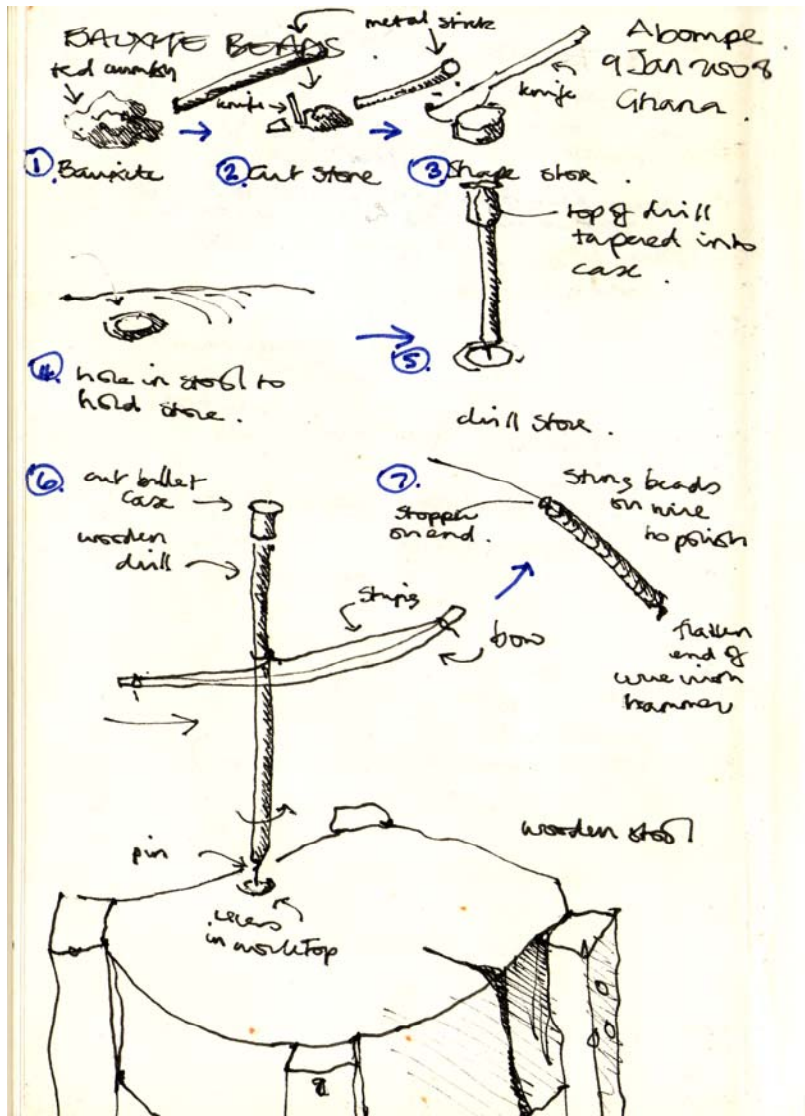 BAUXITE BEADS
metal stick
Abompe
9 Jan 2008
Ghana.
red crumbly
knife
knife
1. Bauxite
2. Cut stone
3. Shape stone.
top of drill
tapered into
case.
4. hole in stool to
hold stone.
5.
drill stone.
6. cut bullet
case
wooden
drill
string
bow
pin
recess
in worktop
wooden stool
7.
String beads
on wire
to polish
stopper
on end.
flatten
end of
wire with
hammer